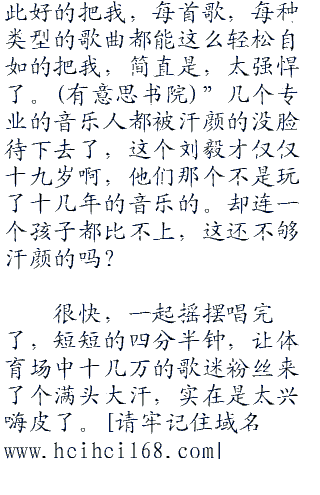 此好的把我，每首歌，每种
类型的歌曲都能这么轻松自
如的把我，简直是，太强悍
了。(有意思书院)”几个专
业的音乐人都被汗颜的没脸
待下去了，这个刘毅才仅仅
十九岁啊，他们那个不是玩
了十几年的音乐的。却连一
个孩子都比不上，这还不够
汗颜的吗？
很快，一起摇摆唱完
了，短短的四分半钟，让体
育场中十几万的歌迷粉丝来
了个满头大汗，实在是太兴
嗨皮了。[请牢记住域名
www.hcihci168.com|